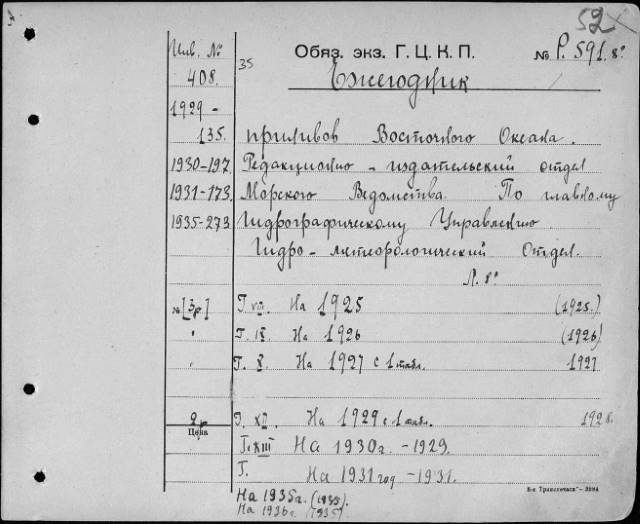 52
Инв. №
408.
35
Обяз. экз. Г. Ц. К. П.
№ Р. 591. 8°
Ежегодник
1929 -
135.
приливов Восточного Океана.
1930-197.
Редакционно - издательский отдел
1931-173.
Морского Ведомства. По главному
1935-273
Гидрографическому Управлению
Гидро - метеорологический Отдел.
Л. 8°
№ [3р]
Г. VIII. На 1925 (1925.)
" Г. IX. На 1926 (1926)
" Г. X. На 1927 с 1 табл. 1927
2р
Цена
Г. XII. На 1929 с 1 табл. 1928.
Г. XIII На 1930г. - 1929.
Г. На 1931 год - 1931.
На 1935г. (1935)
На 1936г. (1935)